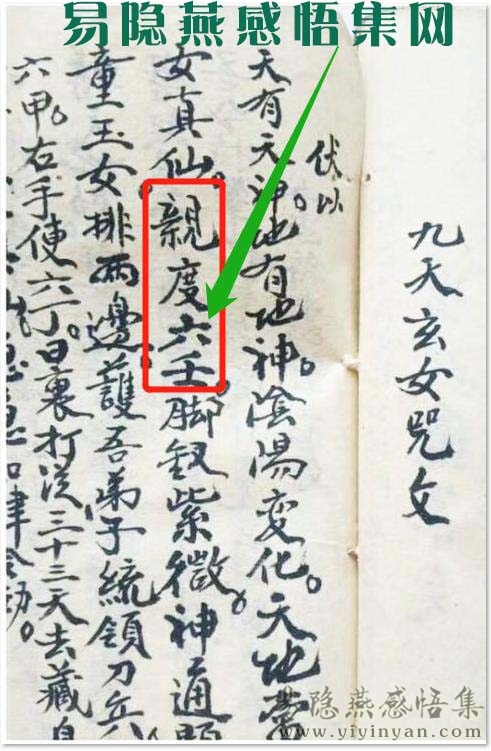 易隐燕感悟集网
九天玄女咒文
伏以
天有天神。地有地神。陰陽变化。天地
女真仙。親度六壬。脚釼紫微。神通
童玉女排兩邊。護吾弟子統領刀兵
六甲。右手使六丁。日裏打从三十三天去藏身
急急如律令勅。
易隐燕感悟集
www.yiyinyan.com